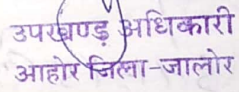 उपखण्ड़ अधिकारी
आहोर जिला-जालोर